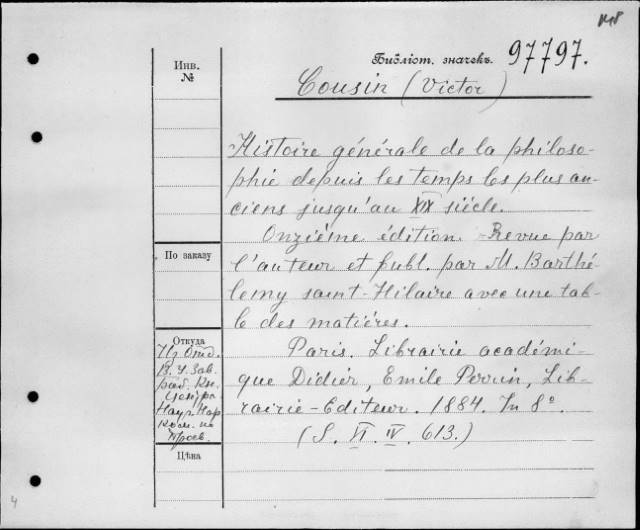 Библіот. значекъ. 97797.
Инв.
№
Cousin (Victor)
Histoire générale de la philoso-
phie depuis les temps les plus an-
ciens jusqu'au XIX siécle.
Onziéme édition. Revue par
l'auteur et publ. par M. Barthé-
lemy saint-Hilaire avec une tab-
le des matiéres.
Paris. Librairie académi-
que Didier, Emile Perrin, Lib-
rairie-Editeur. 1884. In 8º.
(S. VI. IV. 613.)
По заказу
Откуда
Из Отд.
В. У. Зав.
раб. Кн.
Центра
Наук Нар
Ком. по
Просв.
Цѣна
4